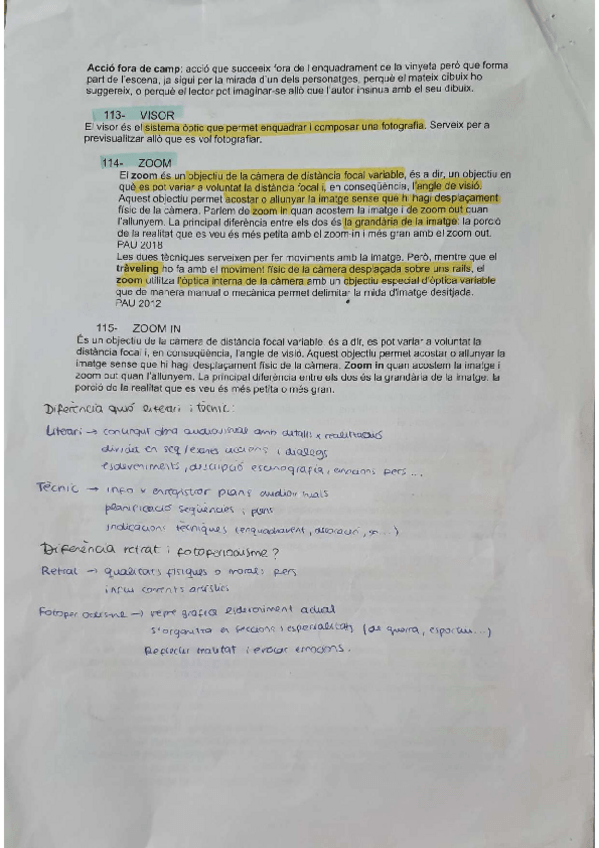 Acció fora de camp: acció que succeeix fora de l enquadrament de la vinyeta però que forma
part de l'escena, ja sigui per la mirada d'un dels personatges, perquè el mateix dibuix ho
suggereix, o perquè el lector pot imaginar-se allò que l'autor insinua amb el seu dibuix.
113- VISOR
El visor és el sistema òptic que permet enquadrar i composar una fotografia. Serveix per a
previsualitzar allò que es vol fotografiar.
114- ZOOM
El zoom és un objectiu de la càmera de distància focal variable, és a dir, un objectiu en
què es pot variar a voluntat la distància focal i, en conseqüència, l'angle de visió.
Aquest objectiu permet acostar o allunyar la imatge sense que hi hagi desplaçament
físic de la càmera. Parlem de zoom in quan acostem la imatge i de zoom out quan
l'allunyem. La principal diferència entre els dos és la grandària de la imatge: la porció
de la realitat que es veu és més petita amb el zoom in i més gran amb el zoom out.
PAU 2018
Les dues tècniques serveixen per fer moviments amb la imatge. Però, mentre que el
tràveling ho fa amb el moviment físic de la càmera desplaçada sobre uns rails, el
zoom utilitza l'òptica interna de la càmera amb un objectiu especial d'òptica variable
que de manera manual o mecànica permet delimitar la mida d'imatge desitjada.
PAU 2012
115- ZOOM IN
És un objectiu de la càmera de distància focal variable, és a dir, es pot variar a voluntat la
distància focal i, en conseqüència, l'angle de visió. Aquest objectiu permet acostar o allunyar la
imatge sense que hi hagi desplaçament físic de la càmera. Zoom in quan acostem la imatge i
zoom out quan l'allunyem. La principal diferència entre els dos és la grandària de la imatge: la
porció de la realitat que es veu és més petita o més gran.
Diferència guió literari i tècnic:
Literari → contingut obra audiovisual amb detalls x realització
dividida en seq/escenes accions i diàlegs
esdeveniments, descripció escenografia, emocions pers...
Tècnic → info x enregistrar plans audiovisuals
planificació seqüències i plans
indicacions tècniques (enquadrament, ...)
Diferència retrat i fotoperiodisme?
Retrat → qualitats físiques o morals pers
corrents artístics
Fotoperiodisme → repre gràfica esdeveniment actual
s'organitza en seccions i especialitats (de guerra, esportiu...)
Reproduir realitat i evocar emocions.